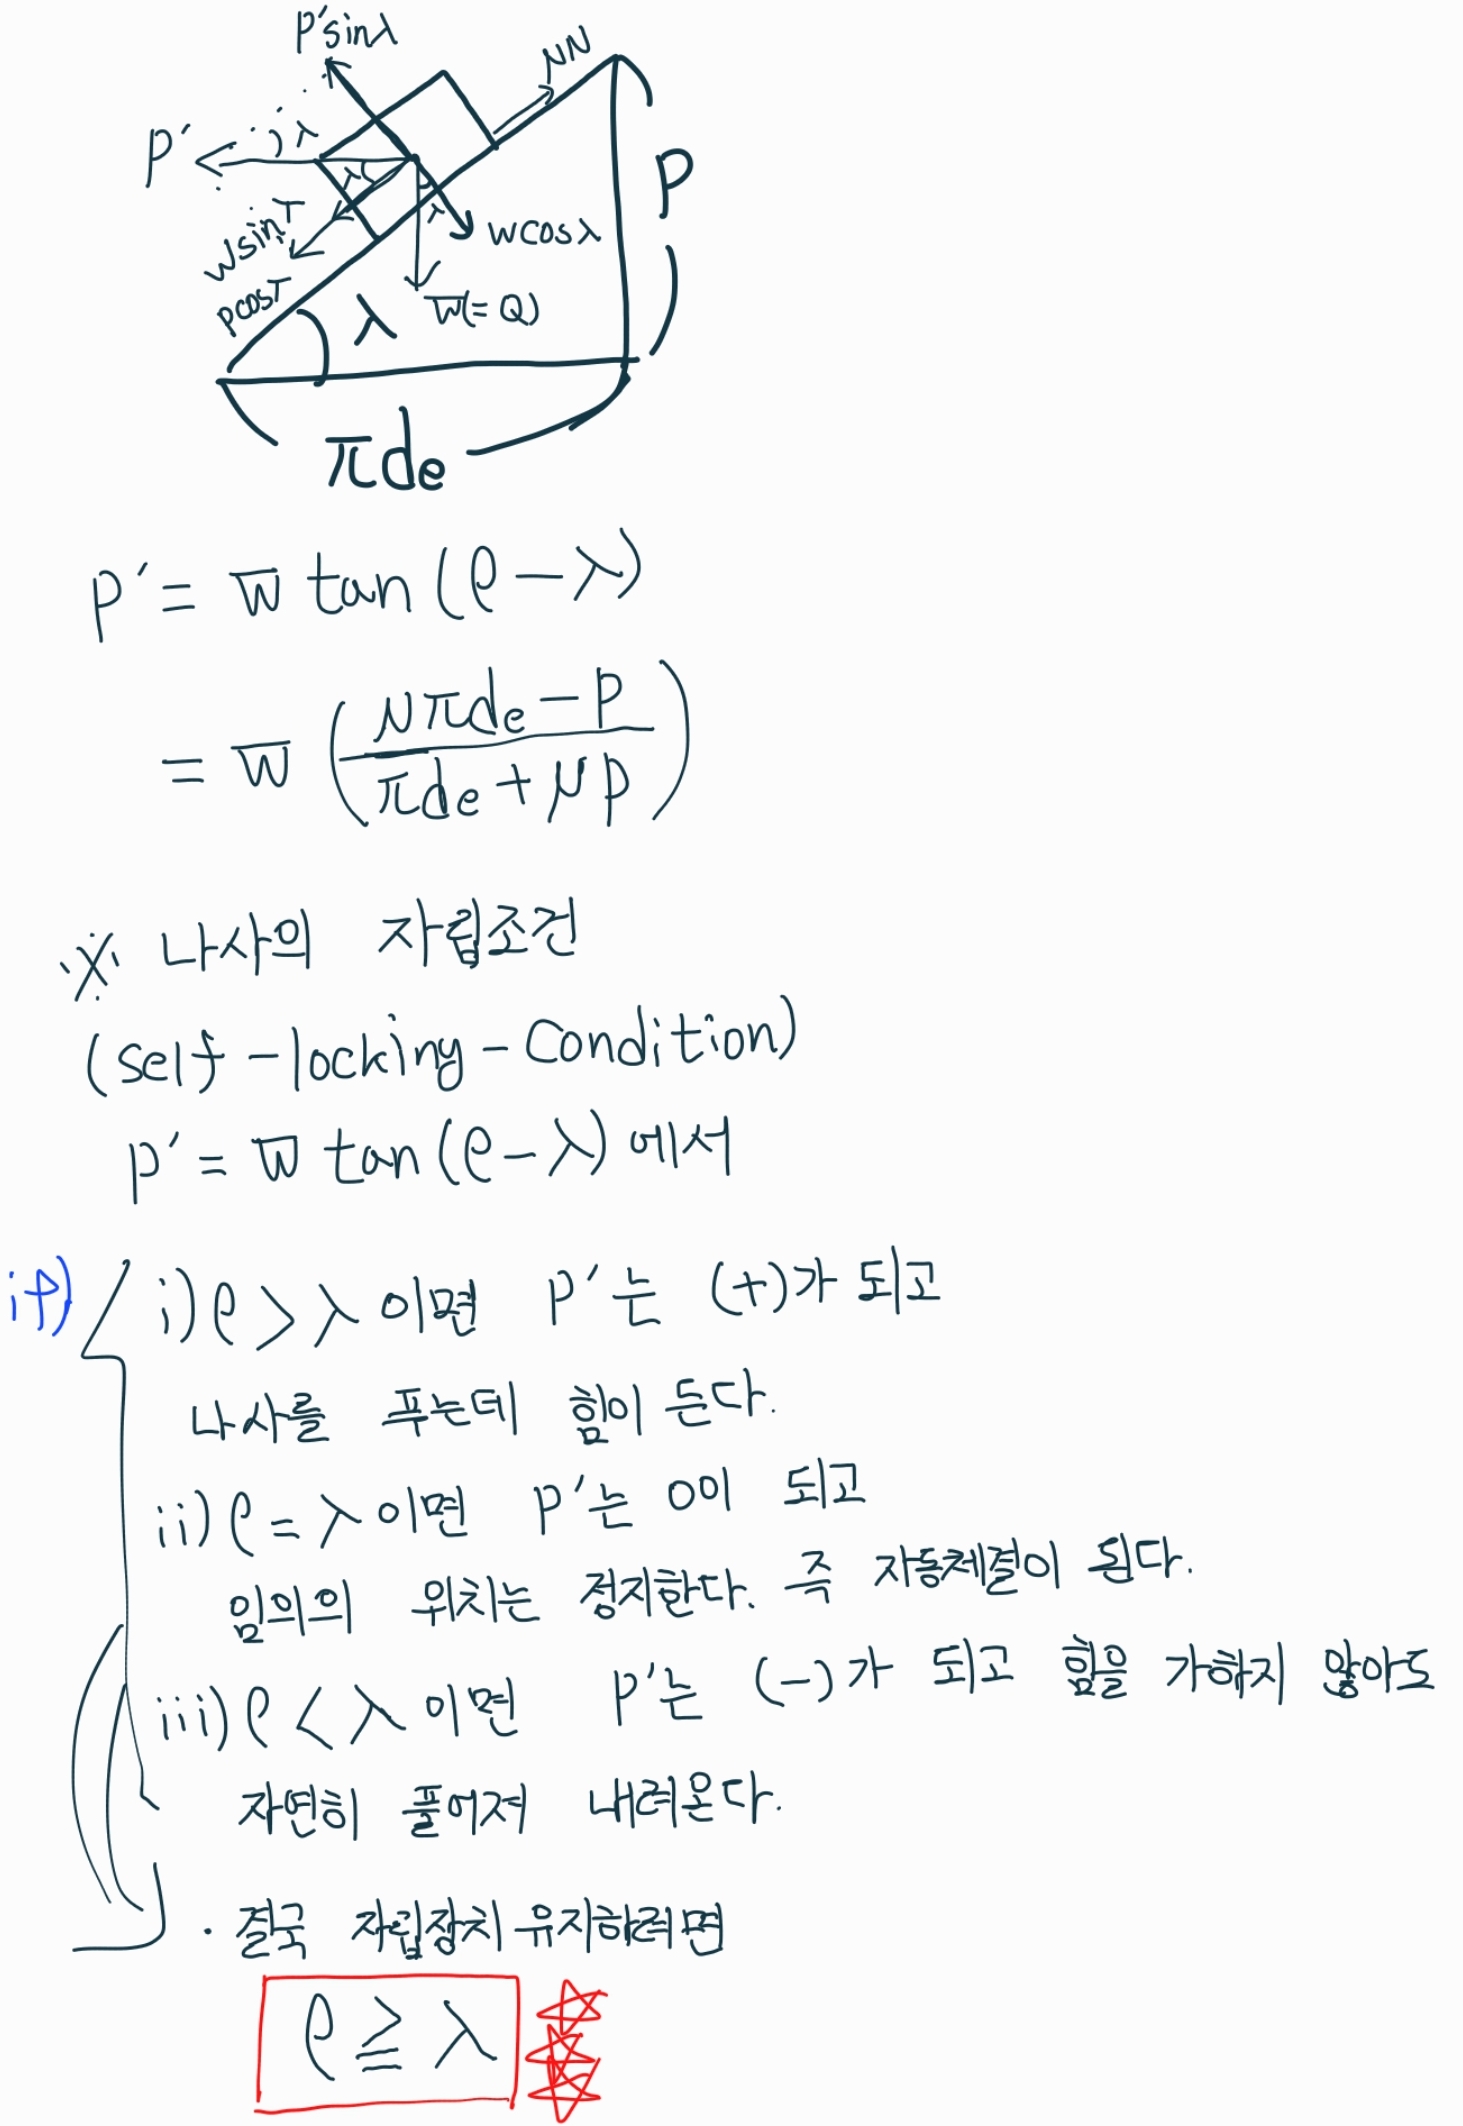 P'sinλ
μN
P'
λ
λ
λ
Wsin
pcos
Wcosλ
W(=Q)
λ
P
πde
P' = W tan(ρ-λ)
= W (μπde - P / πde + μP)
※ 나사의 자립조건
(self-locking-Condition)
P' = W tan(ρ-λ) 에서
if) i) ρ > λ 이면 P'는 (+)가 되고
나사를 푸는데 힘이 든다.
ii) ρ = λ 이면 P'는 0이 되고
임의의 위치는 정지한다. 즉 자동체결이 된다.
iii) ρ < λ 이면 P'는 (-)가 되고 힘을 가하지 않아도
자연히 풀어져 내려온다.
· 결국 자립장치 유지하려면
ρ ≧ λ